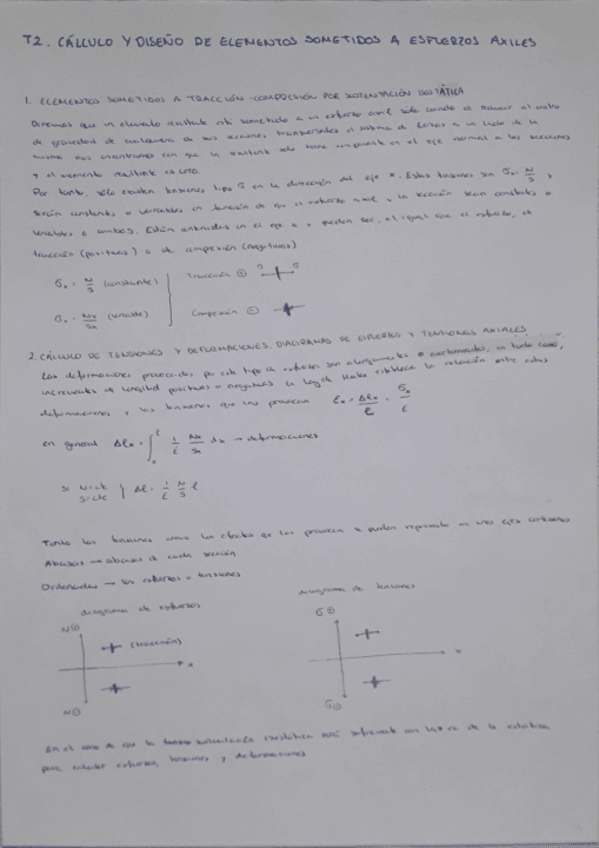 T2. CÁLCULO Y DISEÑO DE ELEMENTOS SOMETIDOS A ESFUERZOS AXILES
1. ELEMENTOS SOMETIDOS A TRACCIÓN-COMPRESIÓN POR SUSTENTACIÓN ISOSTÁTICA
Diremos que un elemento resistente está sometido a un esfuerzo axil sólo cuando al reducir al centro
de gravedad de cualquiera de sus secciones transversales el sistema de fuerzas a un lado de la
misma nos encontramos con que la resultante sólo tiene componente en el eje normal a las secciones
y el momento resultante es cero.
Por tanto, sólo existen tensiones tipo σ en la dirección del eje x. Estas tensiones son σx = N/S y
serán constantes o variables en función de que el esfuerzo axil y la sección sean constantes o
variables o ambos. Están contenidas en el eje x y pueden ser, al igual que el esfuerzo, de
tracción (positivas) o de compresión (negativas)
σx = N/S (constante) Tracción ⊕
σx = Nx/Sx (variable) Compresión ⊖
2. CÁLCULO DE TENSIONES Y DEFORMACIONES. DIAGRAMAS DE ESFUERZOS Y TENSIONES AXIALES
Las deformaciones provocadas por este tipo de esfuerzos son alargamientos o acortamientos, en todo caso,
incrementos de longitud positivos o negativos. La ley de Hooke establece la relación entre estas
deformaciones y las tensiones que las provocan εx = Δlx/l = σx/E
en general Δlx = ∫₀ˡ 1/E Nx/Sx dx → deformaciones
si N=cte S=cte } Δl = 1/E N/S l
Tanto las tensiones como los efectos que las provocan se pueden representar en unos ejes cartesianos
Abscisas → abscisas de cada sección
Ordenadas → los esfuerzos o tensiones
diagrama de esfuerzos diagrama de tensiones
N⊕ σ⊕
(tracción)
x x
N⊖ σ⊖
En el caso de que la sustentación isostática será suficiente con las ec de la estática
para calcular esfuerzos, tensiones y deformaciones